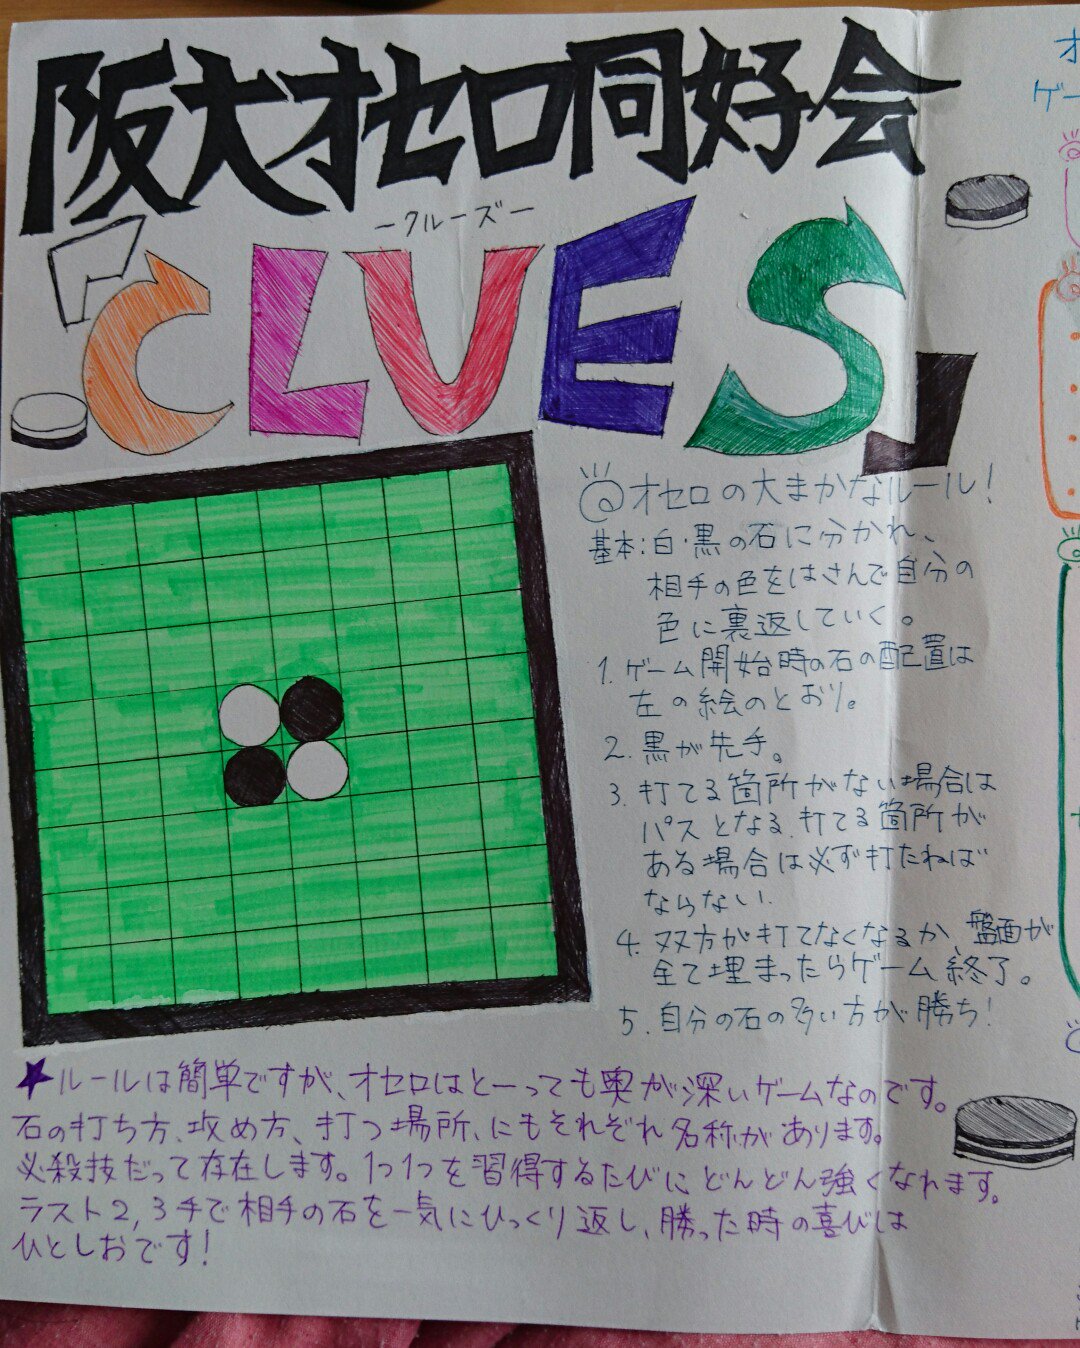 阪大オセロ同好会
「CLUES」
ークルーズー
◎オセロの大まかなルール!
基本:白・黒の石に分かれ、
相手の色をはさんで自分の
色に裏返していく。
1. ゲーム開始時の石の配置は
左の絵のとおり。
2. 黒が先手。
3. 打てる箇所がない場合は
パスとなる.打てる箇所が
ある場合は必ず打たねば
ならない.
4. 双方が打てなくなるか、盤面が
全て埋まったらゲーム終了。
5. 自分の石の多い方が勝ち!
★ルールは簡単ですが、オセロはとーっても奥が深いゲームなのです。
石の打ち方、攻め方、打つ場所、にもそれぞれ名称があります。
必殺技だって存在します。1つ1つを習得するたびにどんどん強くなれます。
ラスト2,3手で相手の石を一気にひっくり返し、勝った時の喜びは
ひとしおです!
ゲー